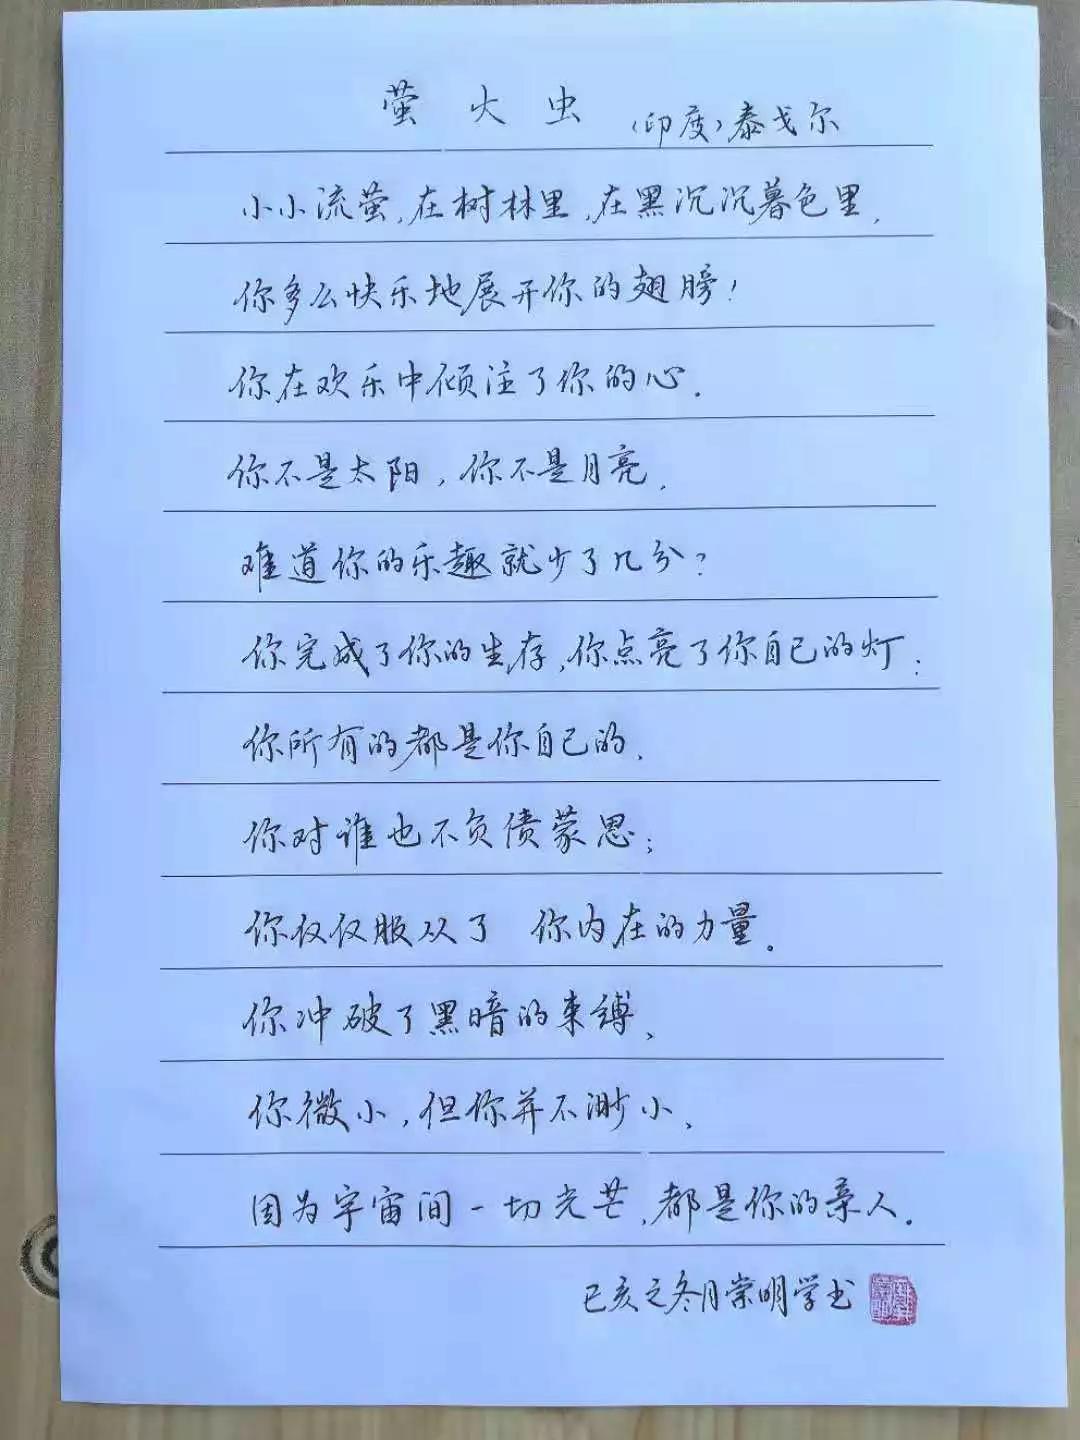 萤火虫 (印度)泰戈尔
小小流萤,在树林里,在黑沉沉暮色里,
你多么快乐地展开你的翅膀!
你在欢乐中倾注了你的心.
你不是太阳,你不是月亮,
难道你的乐趣就少了几分?
你完成了你的生存,你点亮了你自己的灯;
你所有的都是你自己的,
你对谁也不负债蒙恩;
你仅仅服从了 你内在的力量。
你冲破了黑暗的束缚,
你微小,但你并不渺小,
因为宇宙间一切光芒,都是你的亲人.
己亥之冬月崇明学书